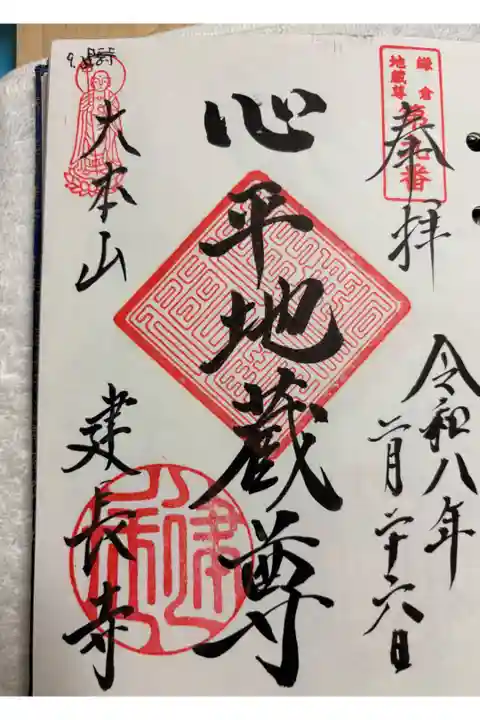 奉拝
鎌倉
地蔵尊
第九番
令和八年
二月二十六日
心平地蔵尊
大本山
建長寺